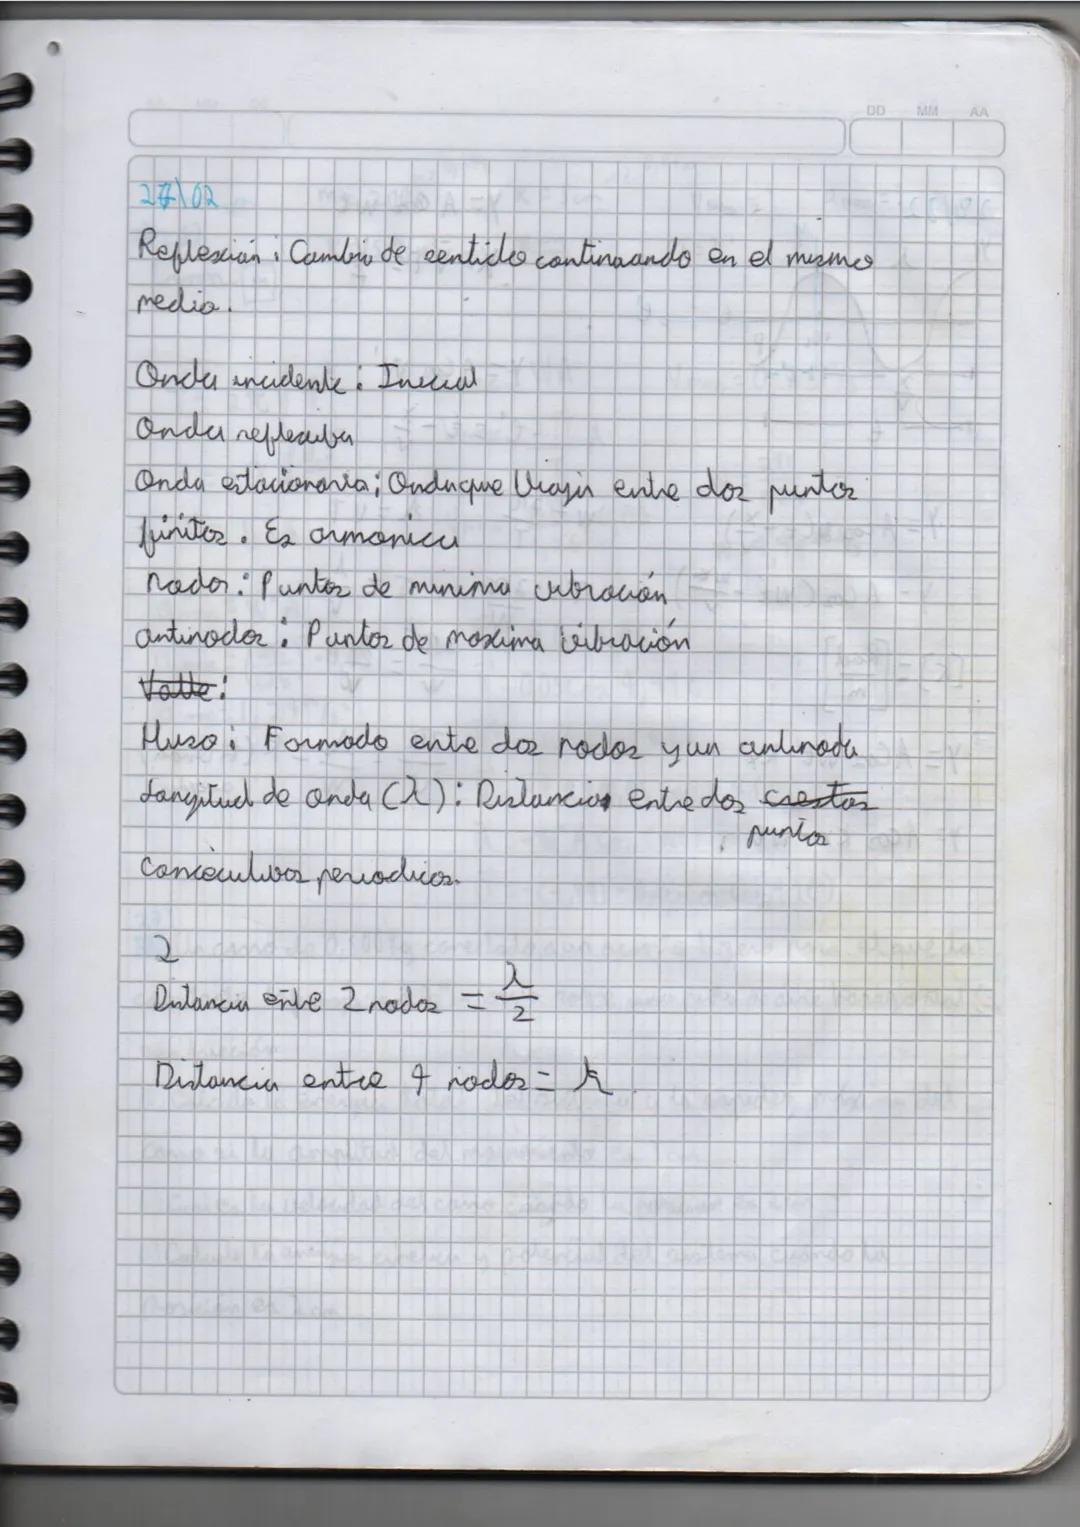 DD MM AA
27\02
Reflexión: Cambio de sentido continuando en el mismo
medio.
Onda incidente: Inicial
Onda reflexiba
Onda estacionaria: Onda que viaja entre dos puntos
finitos. Es armonica
nodos: Puntos de minima vibración
antinodos: Puntos de maxima vibración
Valle:
Huso: Formado entre dos nodos y un antinodo
Longitud de onda (λ): Distancia entre dos crestas
puntos
consecutivos periodicos.
2
Distancia entre 2 nodos = λ/2
Distancia entre 4 nodos = λ